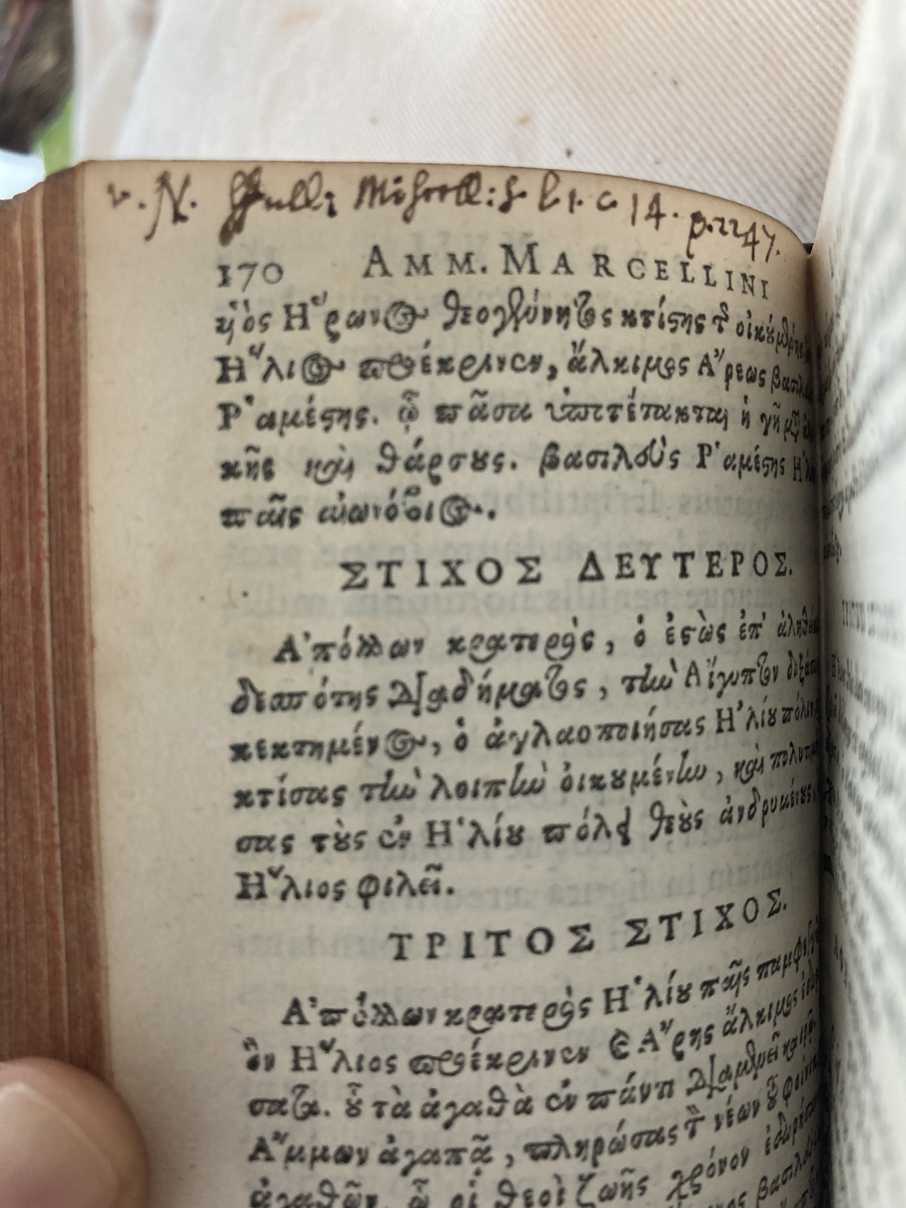 v. N. ffulli Miscell: S. l. 1. c 14. p. 2247.
170 AMM. MARCELLINI
υἱὸς Ἥρωνος θεογέννητος κτίστης τῆς οἰκουμένης
Ἥλιος προέκρινεν, ἄλκιμος Ἄρεως βασιλεὺς
Ῥαμέστης. ᾧ πᾶσα ὑποτέτακται ἡ γῆ μετὰ
κῆς καὶ θάρσους. βασιλεὺς Ῥαμέστης Ἡλίου
παῖς αἰωνόβιος.
ΣΤΙΧΟΣ ΔΕΥΤΕΡΟΣ.
Ἀπόλλων κρατερὸς, ὁ ἑστὼς ἐπ' ἀληθείας
δεσπότης διαδήματος, τὴν Αἴγυπτον δοξάσας
κεκτημένος, ὁ ἀγλαοποιήσας Ἡλίου πόλιν,
κτίσας τὴν λοιπὴν οἰκουμένην, καὶ πολυτιμή
σας τοὺς ἐν Ἡλίου πόλει θεοὺς ἀνδρυμένους,
Ἥλιος φιλεῖ.
ΤΡΙΤΟΣ ΣΤΙΧΟΣ.
Ἀπόλλων κρατερὸς Ἡλίου παῖς παμφεγγὴς
ὃν Ἥλιος προέκρινεν καὶ Ἄρης ἄλκιμος
σατο. οὗ τὰ ἀγαθὰ ἐν παντὶ διαμένει καιρῷ.
Ἄμμων ἀγαπᾷ, πληρώσας τὸν νέων τοῦ φοίνικος
ἀγαθῶν. ᾧ οἱ θεοὶ ζωῆς χρόνον ἐδωρήσαντο